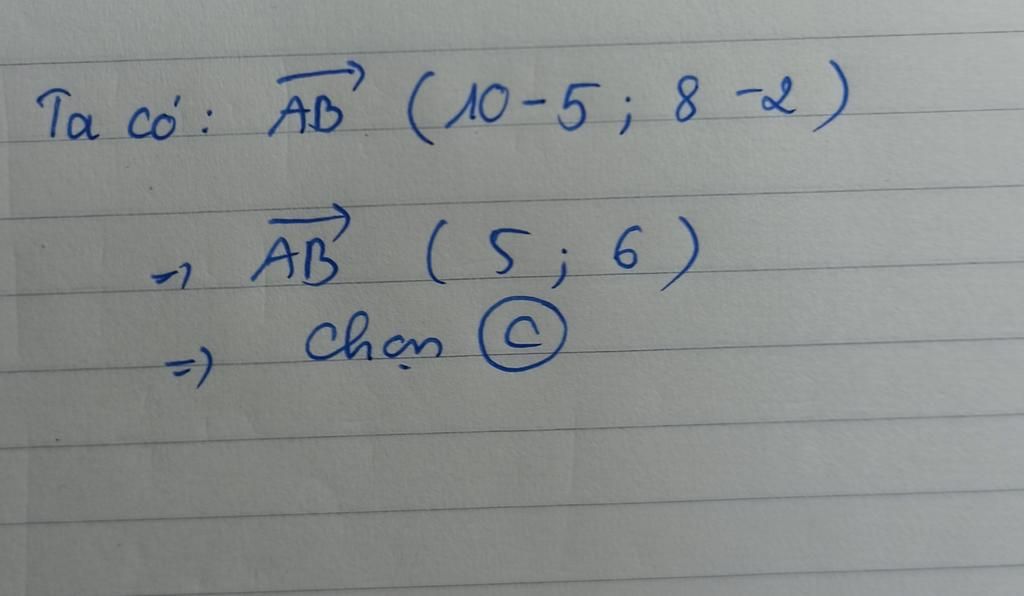 Ta có: \overrightarrow{AB} (10-5; 8-2)
=> \overrightarrow{AB} (5; 6)
=> Chọn Ⓒ